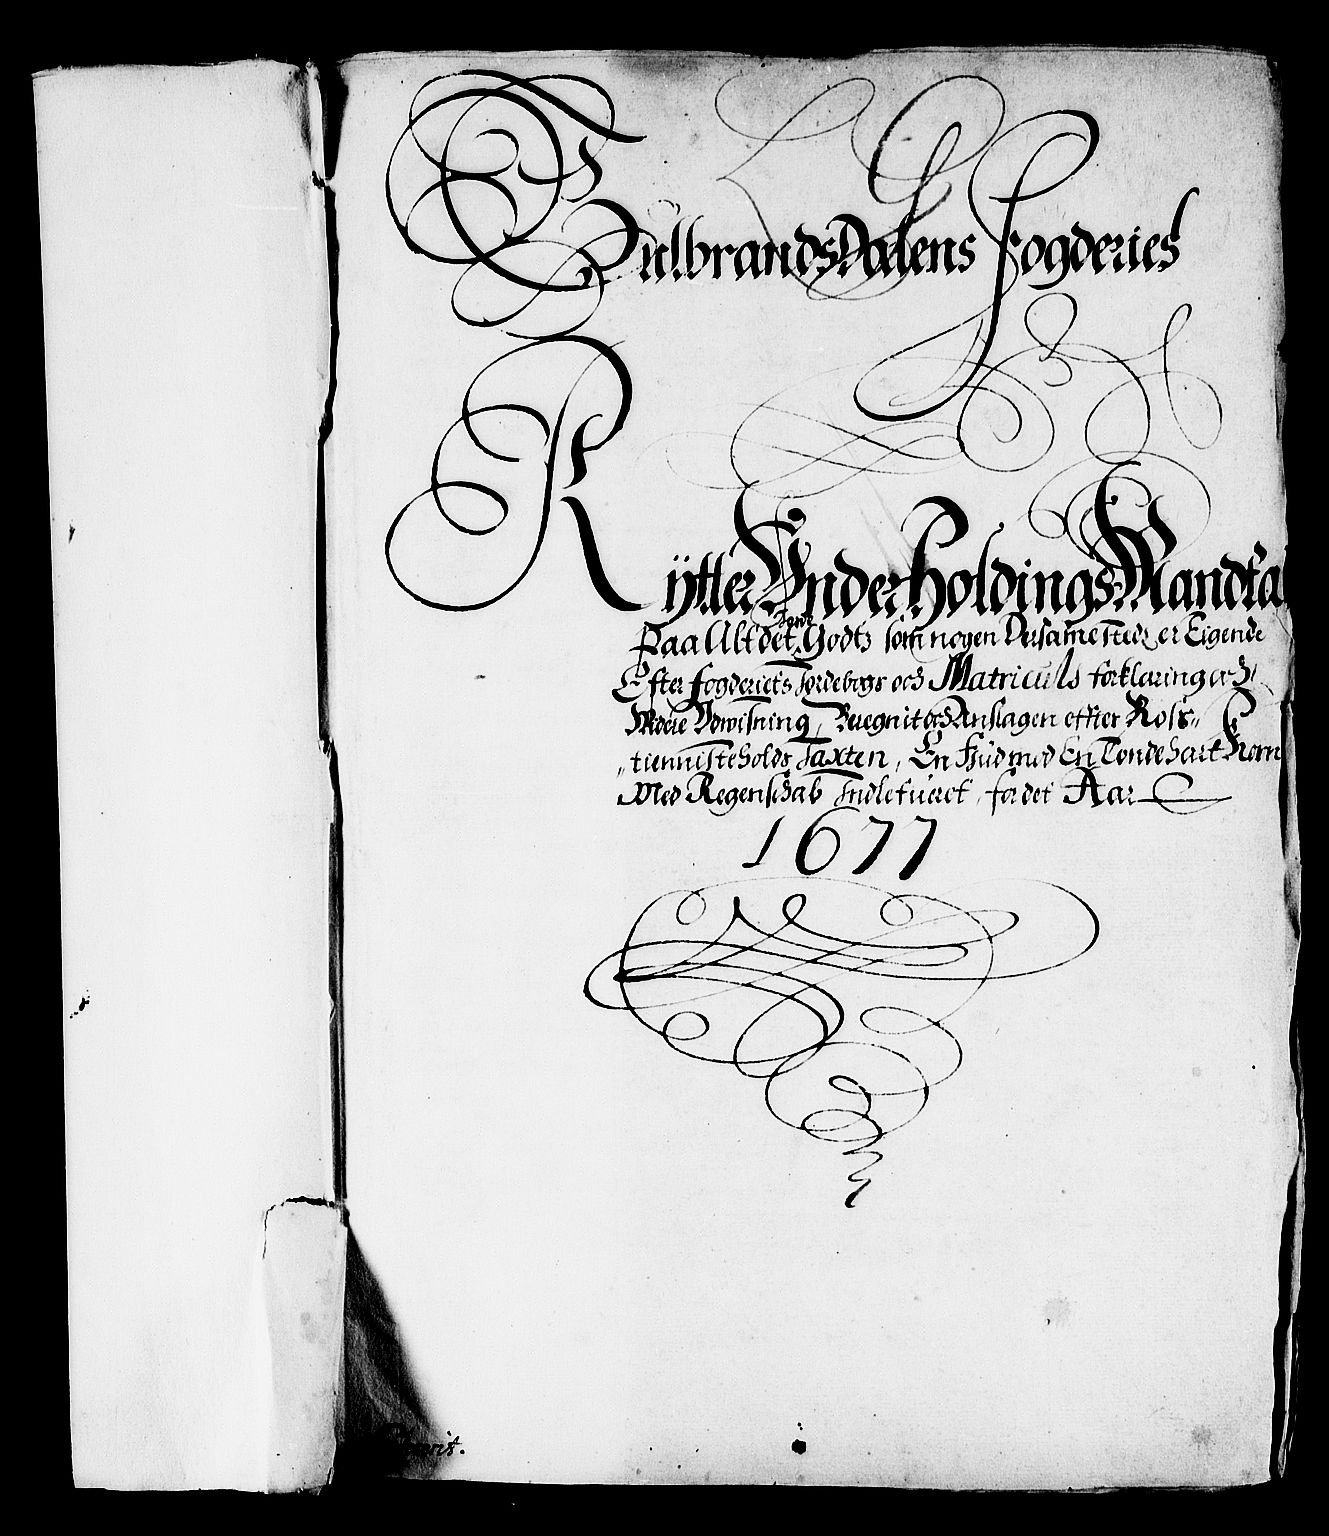 GulbrandsDalens Fogderies
Rÿtter Underholdings Mandta
Jorde
Paa Alt det Godtz som nogen Dersamesteds er Eigende
Efter fogderiets Jordebogs och Matriculs forklaring och
Videre Udwisning, Beregnit och Anslagen effter Ross-
tiennisteholds Taxten, En Hud mod En Tønde hart Korn
Med Regenschab Indlefueret, for det Aar
1677